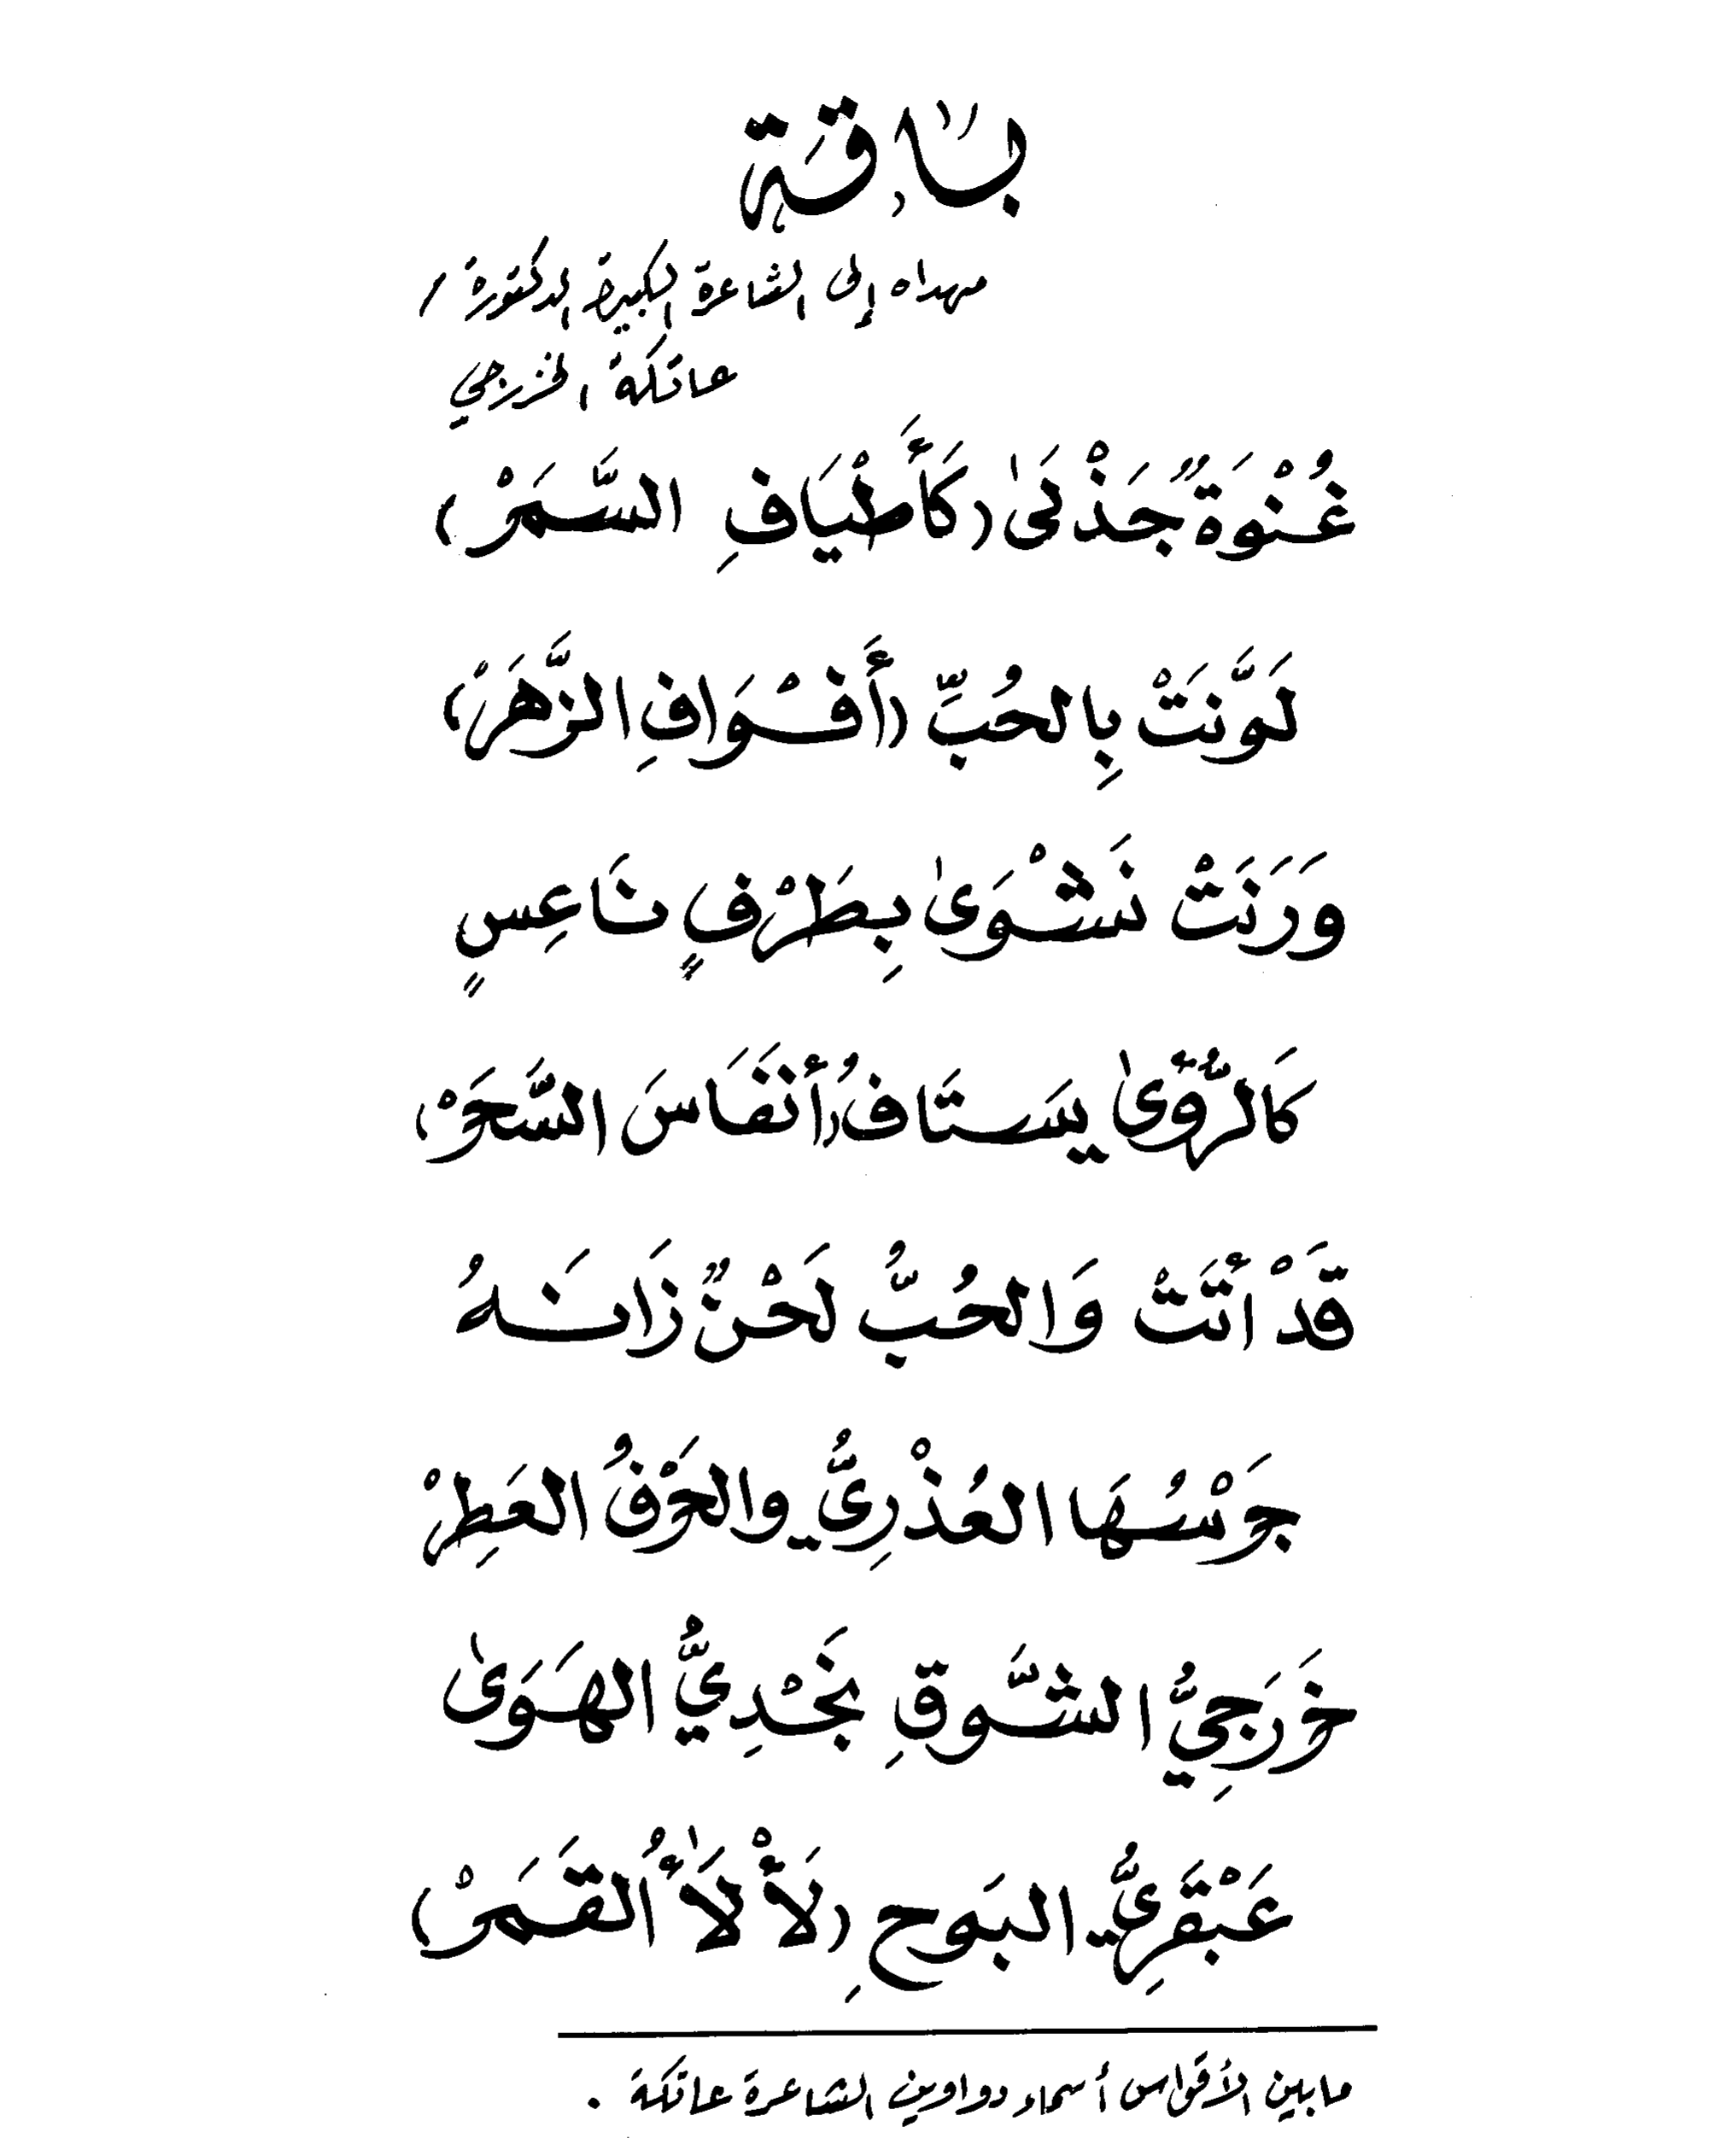 باقة
مهداه إلى الشاعرة الكبيرة الدكتورة /
عاتكة الخزرجي
غُنْوَةٌ جَذْلَىٰ (كَأَطْيَافِ السَّمَرْ)
لَوَّنَتْ بِالحُبِّ (أَفْوَافِ الزَّهَرْ)
وَرَنَتْ نَشْوَىٰ بِطَرْفٍ نَاعِسٍ
كَالرُّؤَىٰ يَستَافُ (أَنفَاسَ السَّحَرْ)
قَدْ أَتَتْ وَالحُبُّ لَحْنٌ زَانَهُ
جَرْسُهَا العُذْرِيُّ والحَرْفُ العَطِرْ
خَزرَجِيُّ الشَّوقِ نَجْدِيُّ الهَوَىٰ
عَبْقَرِيُّ البَوحِ (لَأْلَأُ القَمَرْ)
مابين الأقواس أسماء دواوين الشاعرة عاتكة .